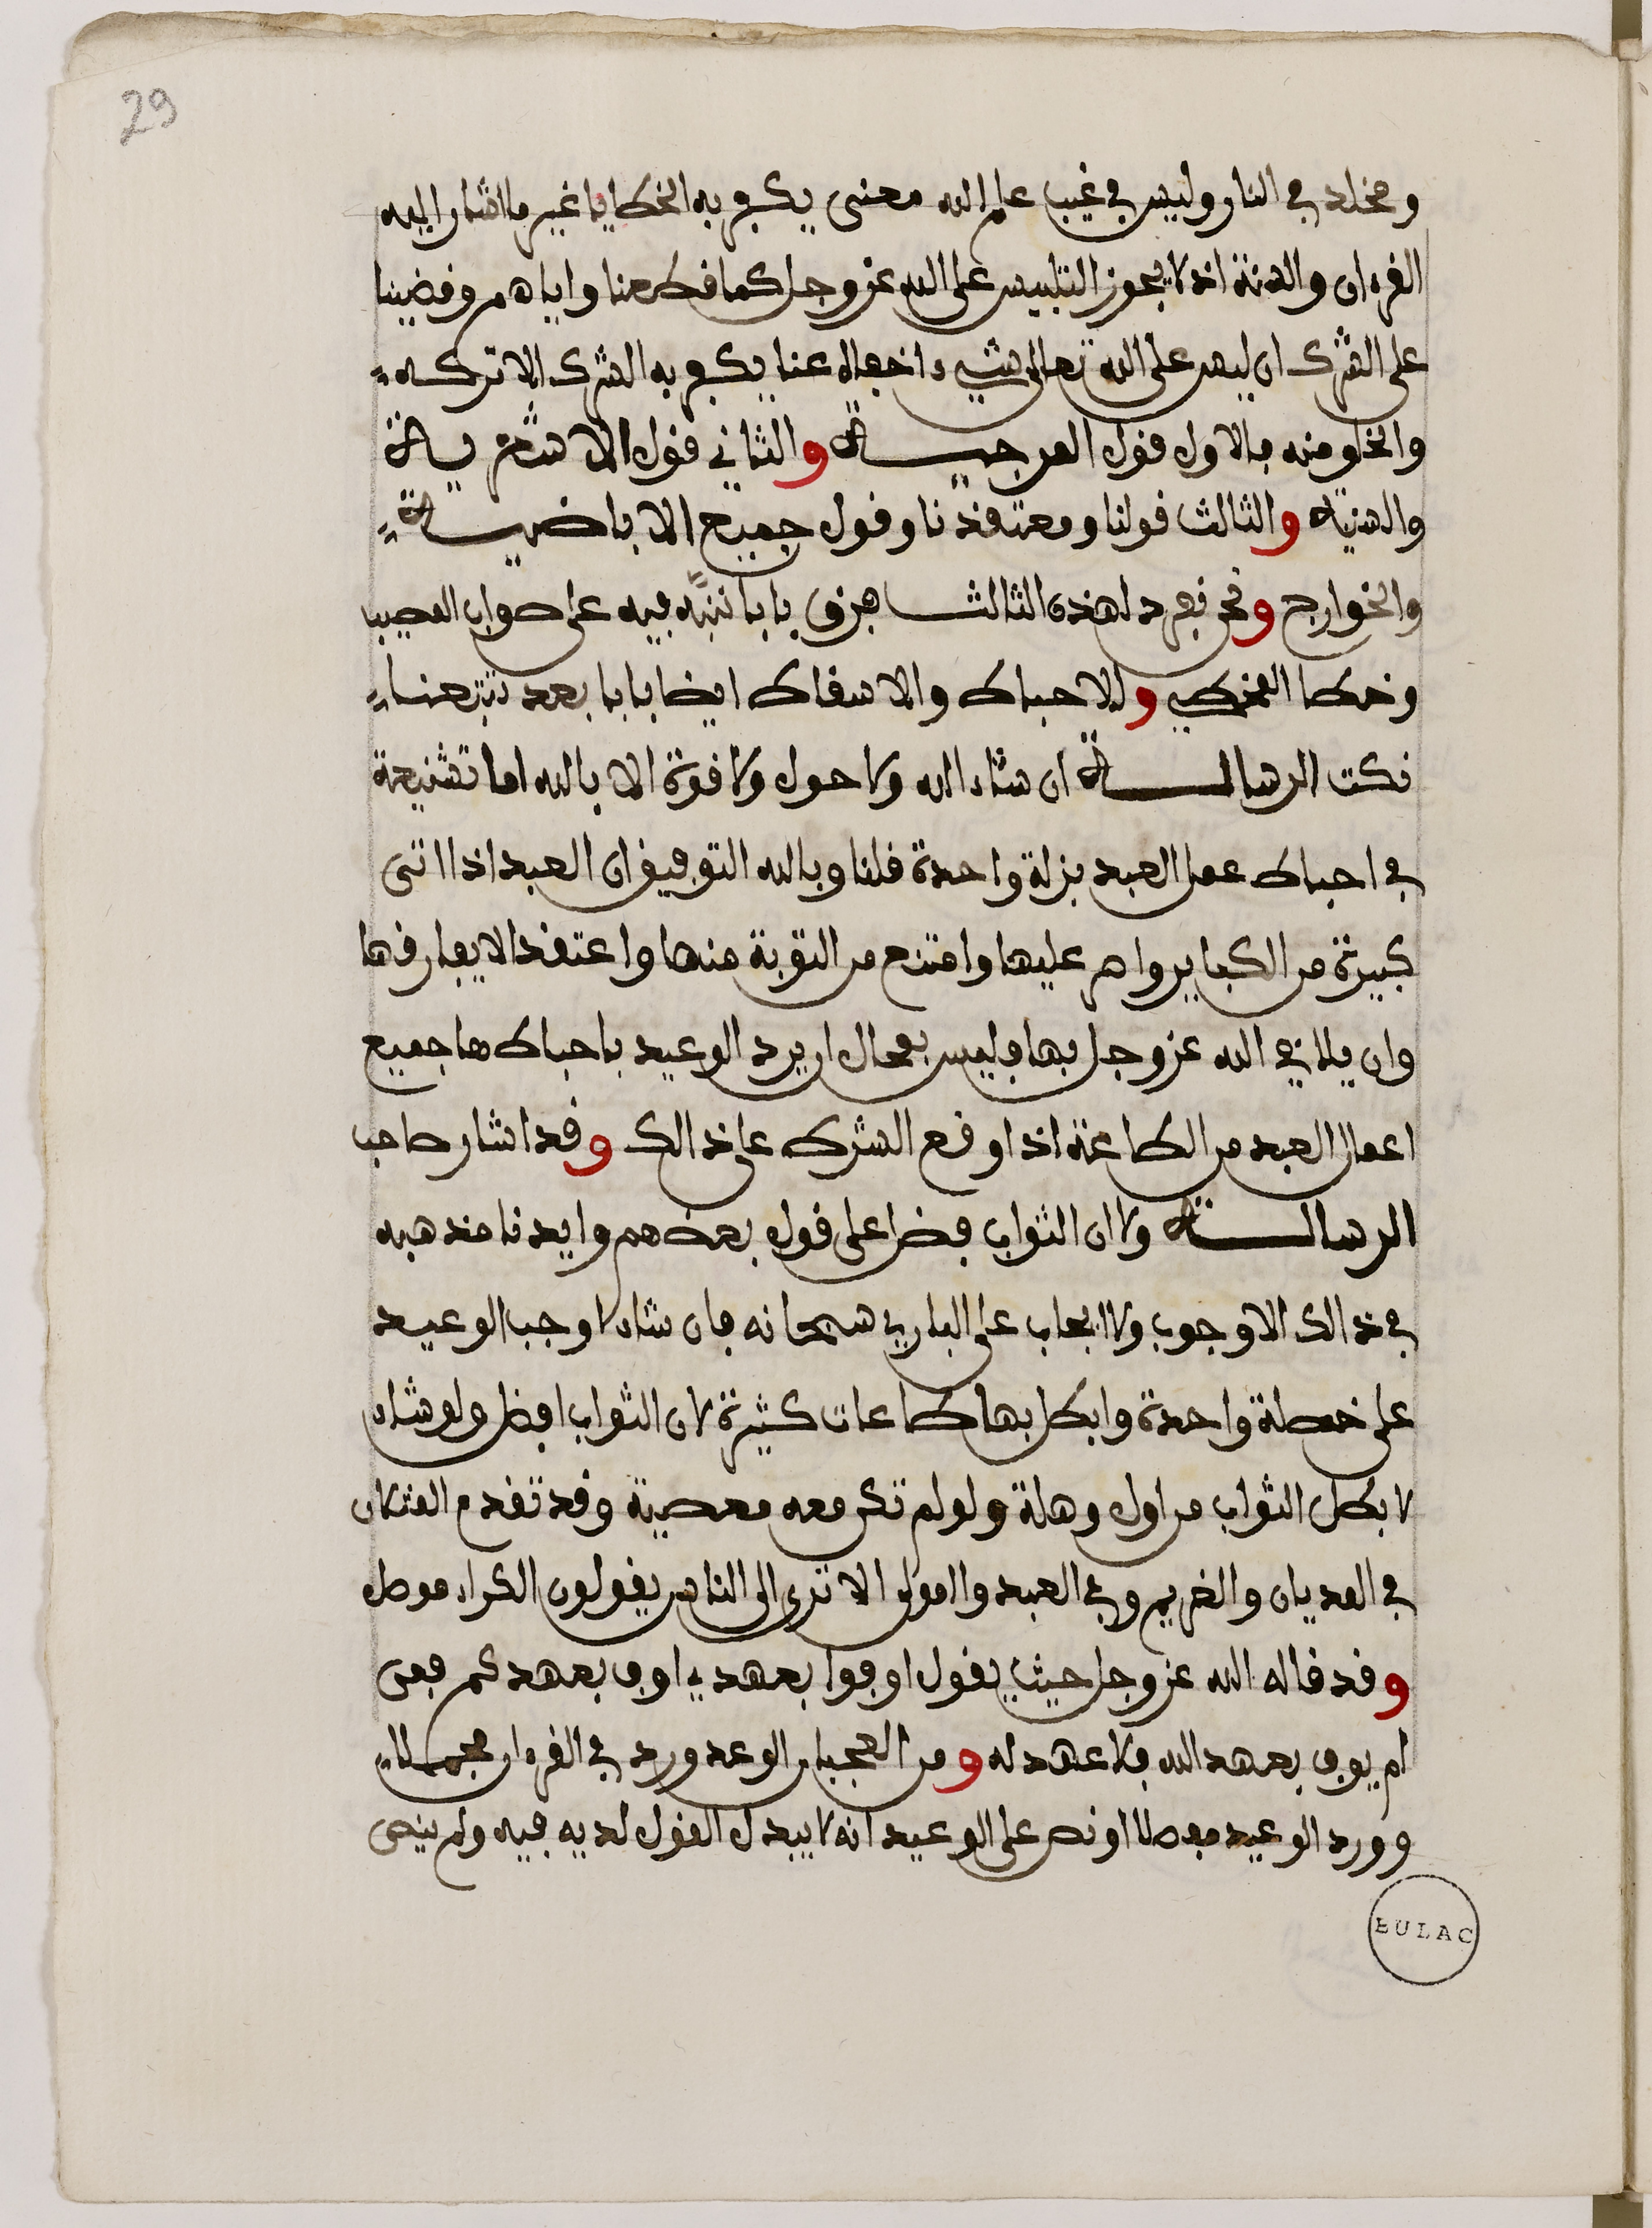 29
ومخلد في النار وليس في غيب علم الله معنى يكفر به الخطايا غير ما اشار اليه
القرءان والسنة اذ لا يجوز التلبيس على الله عز وجل كما قطعنا واياهم وقضينا
على الشرك ان ليس على الله تعالى شيء اخفاه عنا يكفر به الشرك الا تركه
والخلو منه فالاول قول المرجيـة والثاني قول الاشعريـة
والسنية والثالث قولنا ومعتقدنا وقول جميع الاباضيـة
والخوارج ونحن نفرد لهذه الثالث فرق بابا ننبه فيه على صواب المصيب
وخطا المخطي وللاحباط والاسقاط ايضا بابا بعد تتبعنا
نكت الرسالـة ان شاء الله ولا حول ولا قوة الا بالله اما تشنيعة
في احباط عمل العبد بزلة واحدة قلنا وبالله التوفيق ان العبد اذا اتى
كبيرة من الكباير واصر عليها وامتنع من التوبة منها واعتقد الا يفارقها
وان يلاقي الله عز وجل بها فليس بمحال ان يرد الوعيد باحباطها جميع
اعمال العبد من الطاعة اذا وقع الشرك على ذالك وقد اشار صاحب
الرسالـة ولا ان الثواب فضل على قول بعضهم وايدنا مذهبه
في ذالك الا وجوب ولا ايجاب على الباري سبحانه فان شاء لاوجب الوعيد
على خصلة واحدة وابطل بها طاعات كثيرة لان الثواب افضل ولو شاء
لابطل الثواب من اول وهلة ولو لم تكن معه معصية وقد تقدم المثلان
في المديان والغريم وفي العبد والمولى الا ترى الى الناس يقولون الكراء موصل
وقد قاله الله عز وجل حيث يقول اوفوا بعهدي اوف بعهدكم فمن
لم يوف بعهد الله فلا عهد له ومن العجب ان الوعد ورد في القرءان مجملا
وورد الوعيد مفصلا ونص على الوعيد انه لا يبدل القول لديه فيه ولم ينص
BULAC